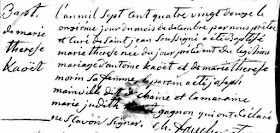 Bapt.
de marie
therese
Kaoët
L'an mil Sept Cent quatre vingt douze le
onzième jour du mois de decembre par nous prêtre
et Curé de Saint jean Soussigné a été Baptisé
marie therese née du jour précédent du légitime
mariage d'antoine Kaoët et de marie therese
morin Sa femme. Le parain a été joseph
mainville dit chêne et la maraine
marie judith gagnon qui ont déclaré
ne Savoir Signer.